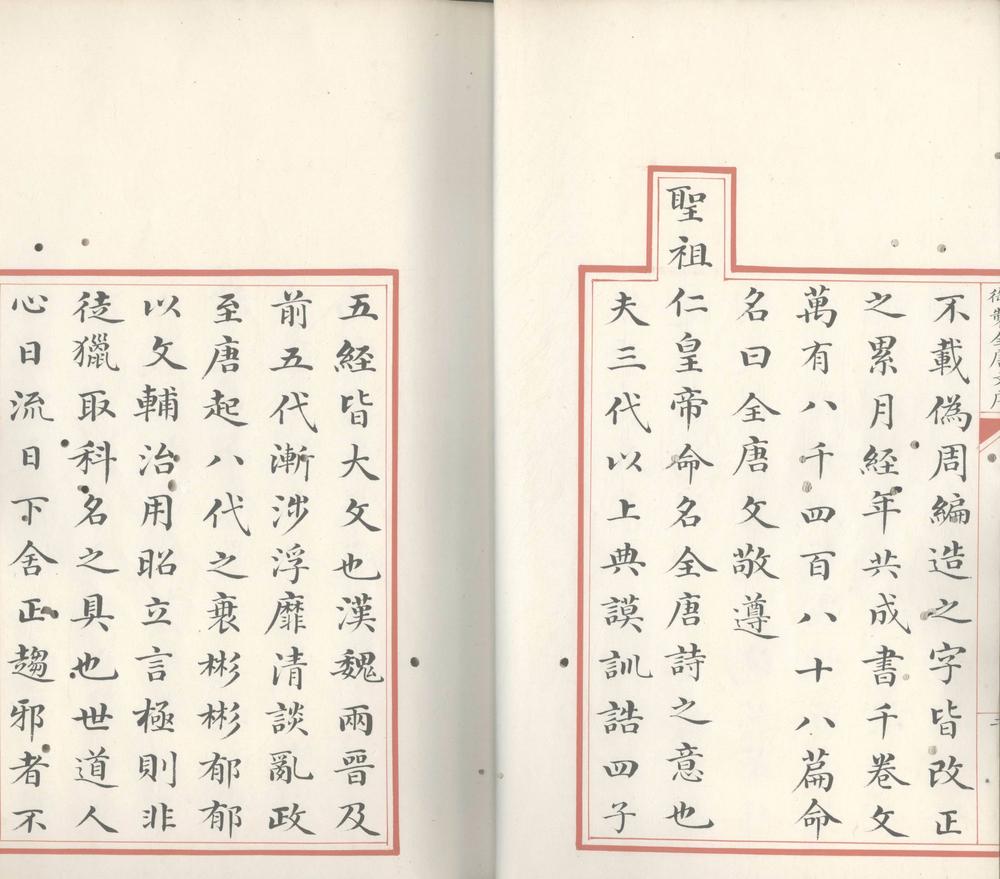 全唐文序
不載偽周編造之字皆改正
之累月經年共成書千卷文
萬有八千四百八十八篇命
名曰全唐文敬遵
聖祖仁皇帝命名全唐詩之意也
夫三代以上典謨訓誥四子
五經皆大文也漢魏兩晉及
前五代漸涉浮靡清談亂政
至唐起八代之衰彬彬郁郁
以文輔治用昭立言極則非
徒獵取科名之具也世道人
心日流日下舍正趨邪者不